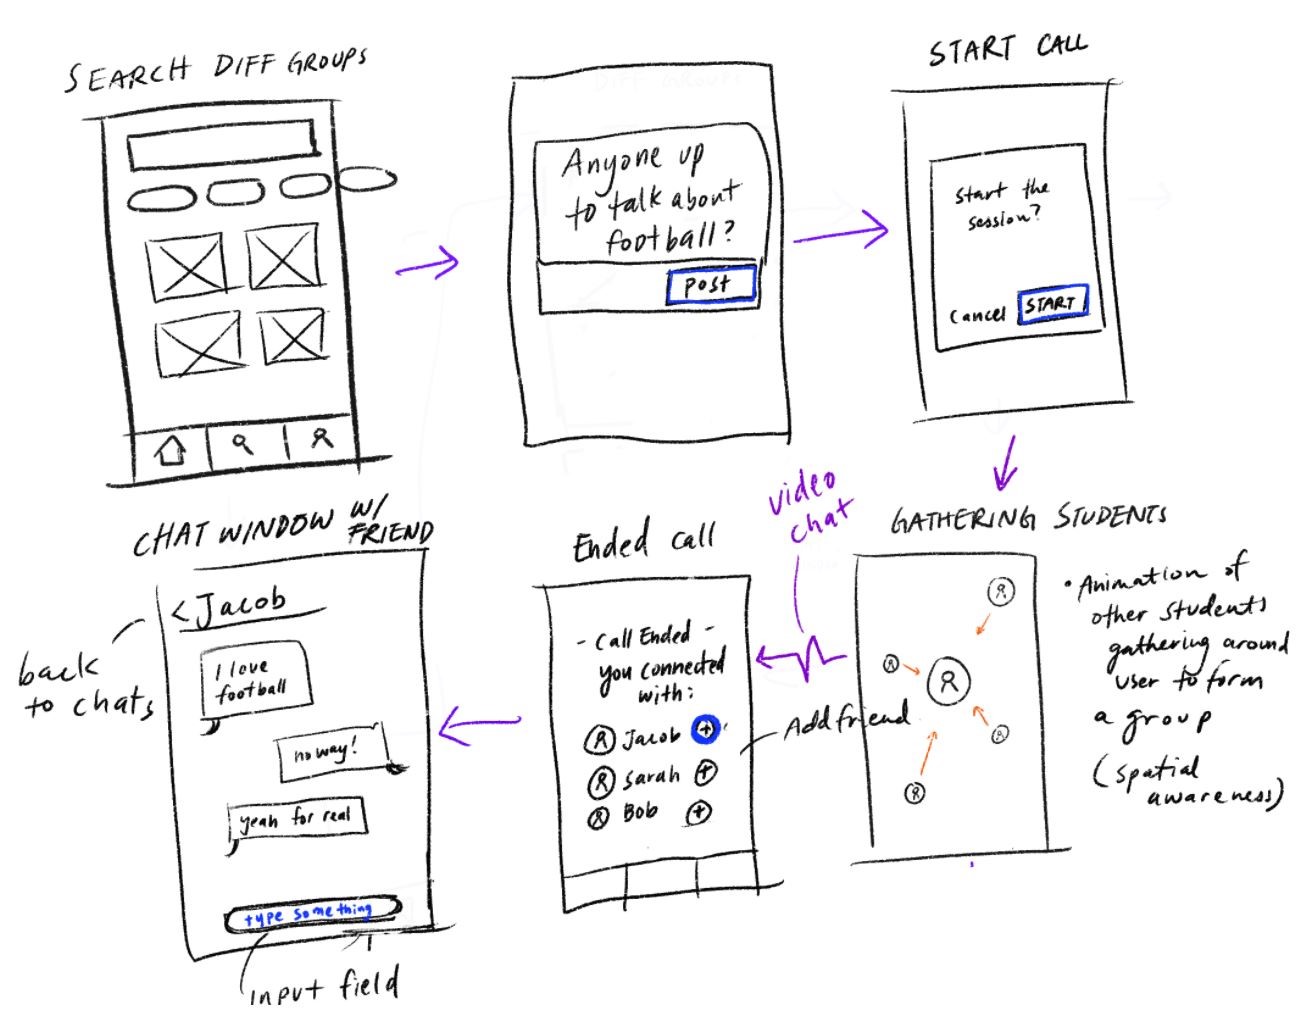 SEARCH DIFF GROUPS
Anyone up
to talk about
football?
post
START CALL
Start the
session?
Cancel
START
GATHERING STUDENTS
• Animation of
other students
gathering around
user to form
a group
(spatial
awareness)
video
chat
Ended call
- Call Ended -
you connected
with:
Jacob +
Sarah +
Bob +
Add friend
CHAT WINDOW W/
FRIEND
< Jacob
back
to chats
I love
football
no way!
yeah for real
type something
input field